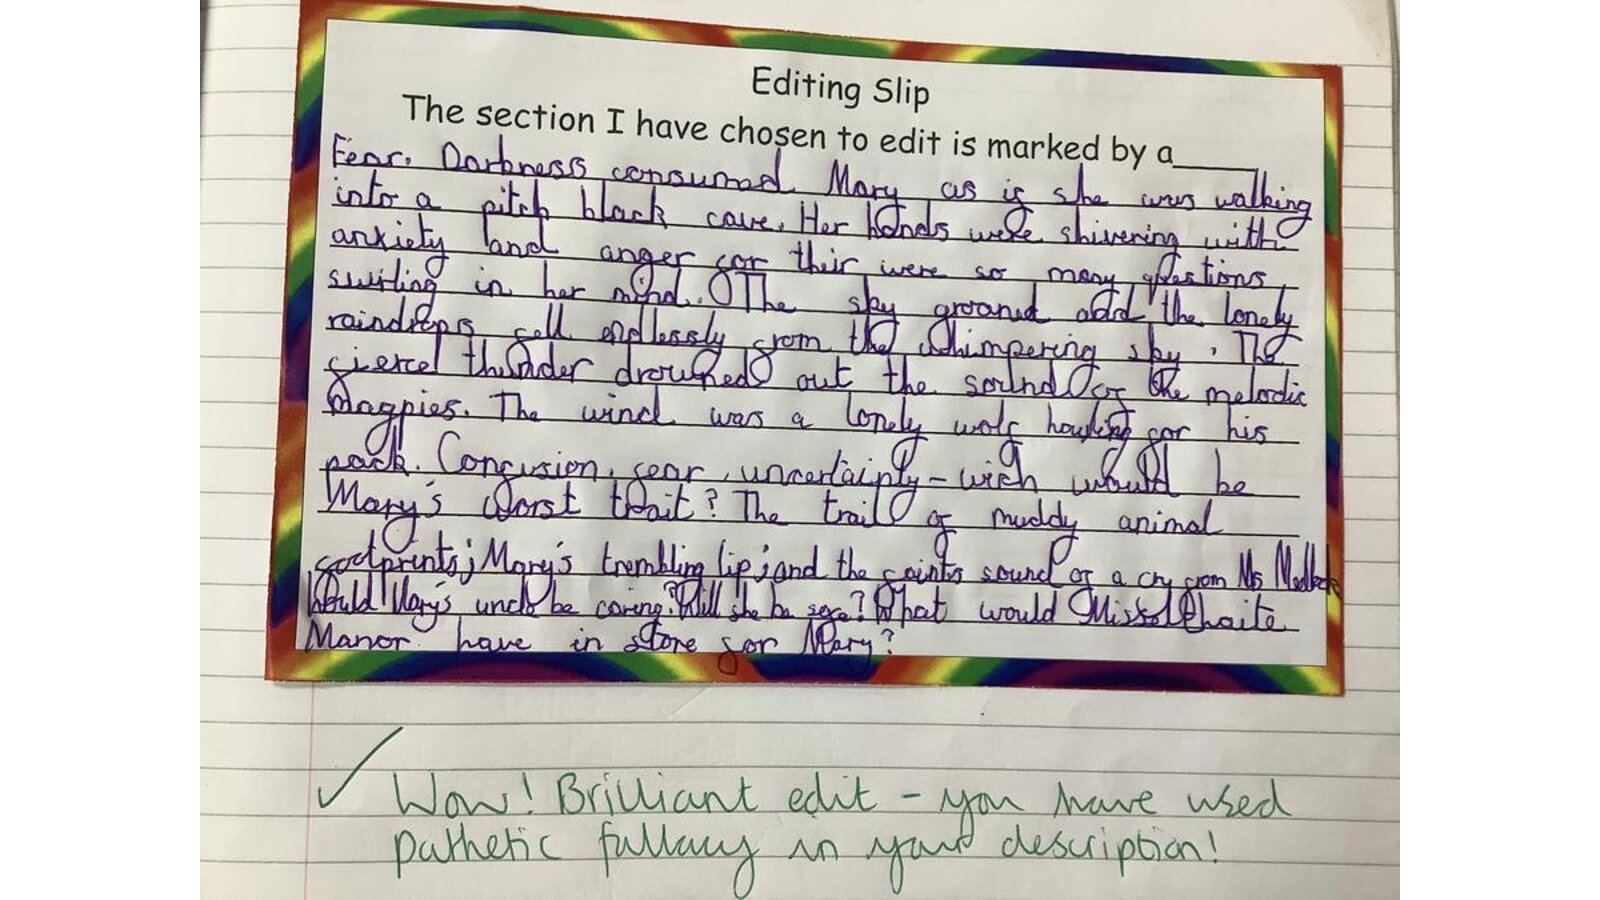 Editing Slip
The section I have chosen to edit is marked by a_____
Fear. Darkness consumed Mary as if she was walking
into a pitch black cave. Her hands were shivering with
anxiety and anger for their were so many questions
swirling in her mind. The sky groaned and the lonely
raindrops fell endlessly from the whimpering sky. The
fierce thunder drowned out the sound of the melodic
magpies. The wind was a lonely wolf howling for his
pack. Confusion, fear, uncertainty - wich would be
Mary's worst trait? The trail of muddy animal
footprints; Mary's trembling lip; and the faint sound of a cry from Ms Medlock
Would Mary's uncle be caring? Will she be safe? What would Misselthwaite
Manor have in store for Mary?
✓ Wow! Brilliant edit - you have used
pathetic fallacy in your description!